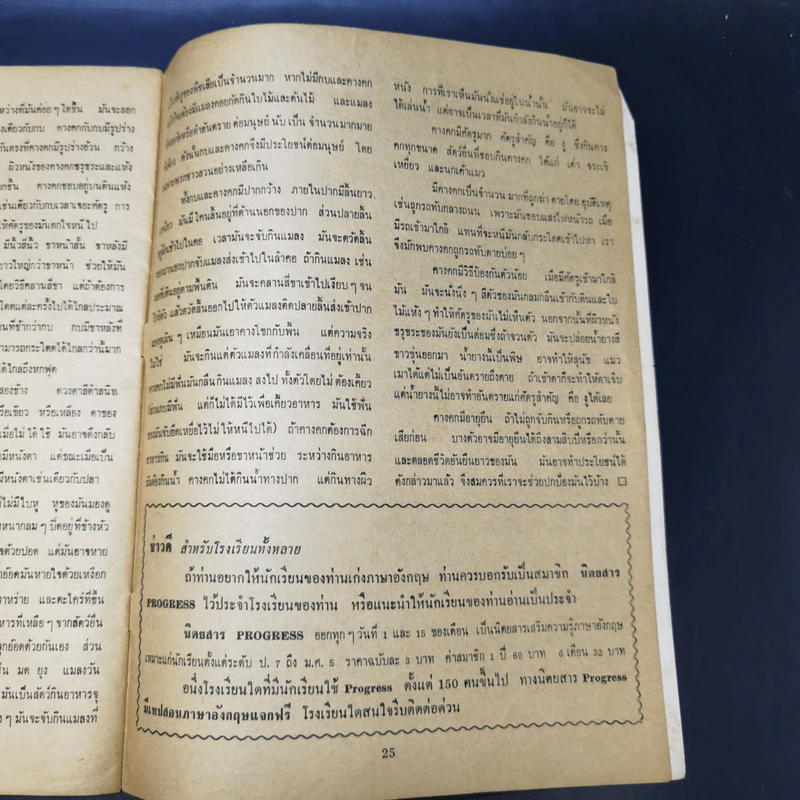 หว่างที่มันค่อย ๆ โตขึ้น มันจะลอก
งเดียวกับกบ คางคกกับกบมีรูปร่าง
นตรงที่คางคกมีรูปร่างอ้วน กว้าง
ผิวหนังของคางคกขรุขระและแห้ง
กชื้น คางคกชอบอยู่บนดินแห้ง
เช่นเดียวกับกบเวลาเจอะศัตรู การ
ให้ศัตรูของมันตกใจหนีไป
มีนิ้วสี่นิ้ว ขาหน้าสั้น ขาหลังมี
ยาวใหญ่กว่าขาหน้า ช่วยให้มัน
โดยวิธีคลานสี่ขา แต่ถ้าต้องการ
โดดแต่ละครั้งไปได้ไกลประมาณ
นที่ช้ากว่ากบ กบมีขาหลังที่
ามารถกระโดดได้ไกลกว่านี้มาก
ได้ไกลถึงหกฟุต
สองข้าง ดวงตาสีดำสนิท
รือเขียว หรือเหลือง ตาของ
เมื่อไม่ได้ใช้ มันอาจดึงกลับ
มีหนังตา แต่ขณะเมื่อเป็น
มีหนังตาเช่นเดียวกับปลา
ก็ไม่มีใบหู หูของมันมองดู
หนากลม ๆ ปิดอยู่ที่ข้างหัว
จด้วยปอด แต่มันอาจหาย
อ๊อดมันหายใจด้วยเหงือก
าหร่าย และตะไคร่ที่ขึ้น
หารที่เหลือ ๆ จากสัตว์อื่น
ลูกอ๊อดด้วยกันเอง ส่วน
ช่น มด ยุง แมลงวัน
มันเป็นสัตว์กินอาหารจุ
ง ๆ มันจะจับกินแมลงที่
เป็นศัตรูของพืชเสียเป็นจำนวนมาก หากไม่มีกบและคางคก
ก็จะต้องมีแมลงคอยกัดกินใบไม้และต้นไม้ และแมลง
กัดหรือทำอันตราย ต่อมนุษย์ นับ เป็น จำนวนมากมาย
ดังนั้นกบและคางคกจึงมีประโยชน์ต่อมนุษย์ โดย
เฉพาะพวกชาวสวนอย่างเหลือเกิน
ทั้งกบและคางคกมีปากกว้าง ภายในปากมีลิ้นยาว
มันมีโคนลิ้นอยู่ที่ด้านนอกของปาก ส่วนปลายลิ้น
เข้าไปในคอ เวลามันจะจับกินแมลง มันจะตวัดลิ้น
ออกมานอกปากจับแมลงส่งเข้าไปในลำคอ ถ้ากินแมลง เช่น
ที่เดินอยู่ตามพื้นดิน มันจะคลานสี่ขาเข้าไปเงียบ ๆ จน
แล้วตวัดลิ้นออกไปให้ตัวแมลงติดปลายลิ้นส่งเข้าปาก
ๆ เหมือนมันเอาคางโขกกับพื้น แต่ความจริง
ไม่ใช่ มันจะกินแต่ตัวแมลงที่กำลังเคลื่อนที่อยู่เท่านั้น
คางคกไม่มีฟันมันกลืนกินแมลง ลงไป ทั้งตัวโดยไม่ต้องเคี้ยว
(ส่วนกบมีฟัน แต่ก็ไม่ได้มีไว้เพื่อเคี้ยวอาหาร มันใช้ฟัน
ของมันจับยึดเหยื่อไว้ไม่ให้หนีไปได้) ถ้าคางคกต้องการฉีก
อาหารกิน มันจะใช้มือหรือขาหน้าช่วย ระหว่างกินอาหาร
มันต้องกินน้ำ คางคกไม่ได้กินน้ำทางปาก แต่กินทางผิว
หนัง การที่เราเห็นมันนั่งแช่อยู่ในน้ำนั้น มันอาจจะไม่
ได้เล่นน้ำ แต่อาจเป็นเวลาที่มันกำลังกินน้ำอยู่ก็ได้
คางคกมีศัตรูมาก ศัตรูสำคัญ คือ งู ซึ่งกินคาง
คกทุกขนาด สัตว์อื่นที่ชอบกินคางคก ได้แก่ เต่า จระเข้
เหยี่ยว และนกเค้าแมว
มีคางคกเป็นจำนวนมากที่ถูกฆ่า ตายโดย อุบัติเหตุ
เช่นถูกรถทับกลางถนน เพราะมันชอบแสงไฟหน้ารถ เมื่อ
มีรถเข้ามาใกล้ แทนที่จะหนีมันกลับกระโดดเข้าไปหา เรา
จึงมักพบคางคกถูกรถทับตายบ่อย ๆ
คางคกมีวิธีป้องกันตัวน้อย เมื่อมีศัตรูเข้ามาใกล้
มัน มันจะนั่งนิ่ง ๆ สีตัวของมันกลมกลืนเข้ากับดินและใบ
ไม้แห้ง ๆ ทำให้ศัตรูของมันไม่เห็นตัว นอกจากนั้นที่ผิวหนัง
ขรุขระของมันยังเป็นต่อมซึ่งถ้าจวนตัว มันจะปล่อยน้ำยางสี
ขาวขุ่นออกมา น้ำยางนี้เป็นพิษ อาจทำให้สุนัข แมว
เมาได้แต่ไม่เป็นอันตรายถึงตาย ถ้าเข้าตาก็จะทำให้ตาเจ็บ
แต่น้ำยางนี้ไม่อาจทำอันตรายแก่ศัตรูสำคัญ คือ งูได้เลย
คางคกมีอายุยืน ถ้าไม่ถูกจับกินหรือถูกรถทับตาย
เสียก่อน บางตัวอาจมีอายุยืนได้ถึงสามสิบปีหรือกว่านั้น
และตลอดชีวิตอันยืนยาวของมัน มันอาจทำประโยชน์ได้
ดังกล่าวมาแล้ว จึงสมควรที่เราจะช่วยปกป้องมันไว้บ้าง □
ข่าวดี สำหรับโรงเรียนทั้งหลาย
ถ้าท่านอยากให้นักเรียนของท่านเก่งภาษาอังกฤษ ท่านควรบอกรับเป็นสมาชิก นิตยสาร
PROGRESS ไว้ประจำโรงเรียนของท่าน หรือแนะนำให้นักเรียนของท่านอ่านเป็นประจำ
นิตยสาร PROGRESS ออกทุก ๆ วันที่ 1 และ 15 ของเดือน เป็นนิตยสารเสริมความรู้ภาษาอังกฤษ
เหมาะแก่นักเรียนตั้งแต่ระดับ ป. 7 ถึง ม.ศ. 5 ราคาฉบับละ 3 บาท ค่าสมาชิก 1 ปี 60 บาท 6 เดือน 32 บาท
อนึ่งโรงเรียนใดที่มีนักเรียนใช้ Progress ตั้งแต่ 150 คนขึ้นไป ทางนิตยสาร Progress
มีเทปสอนภาษาอังกฤษแจกฟรี โรงเรียนใดสนใจรีบติดต่อด่วน
25